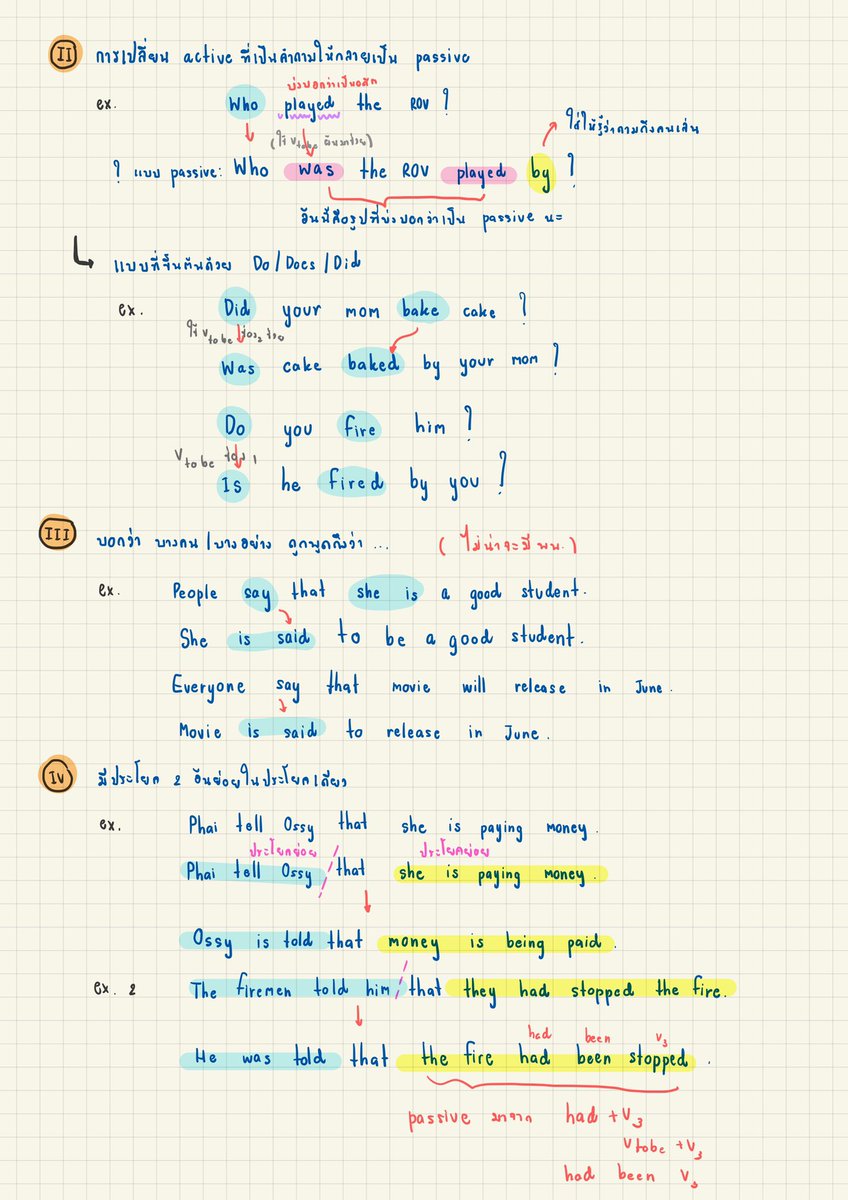 II การเปลี่ยน active ที่เป็นคำถามให้กลายเป็น passive
บ่งบอกว่าเป็นอดีต
ex. Who played the ROV ?
ใส่ให้รู้ว่าถามถึงคนเล่น
(ใช้ Vtobe
? แบบ passive: Who was the ROV played by ?
อันนี้คือรูปที่บ่งบอกว่าเป็น passive นะ
แบบที่ขึ้นต้นด้วย Do / Does / Did
ex. Did your mom bake cake ?
ใช้ Vto be ช่อง2
Was cake baked by your mom ?
Do you fire him ?
Vto be ช่อง 1
Is he fired by you ?
III บอกว่า บางคน / บางอย่าง ถูกพูดถึงว่า ... ( ไม่น่าจะมี พน. )
ex. People say that she is a good student.
She is said to be a good student.
Everyone say that movie will release in June.
Movie is said to release in June.
IV มีประโยค 2 อันย่อยในประโยคเดียว
ex. Phai tell Ossy that she is paying money.
ประโยคย่อย ประโยคย่อย
Phai tell Ossy / that she is paying money.
Ossy is told that money is being paid.
ex. 2 The firemen told him / that they had stopped the fire.
had been V3
He was told that the fire had been stopped.
passive มาจาก had + V3
Vtobe + V3
had been V3